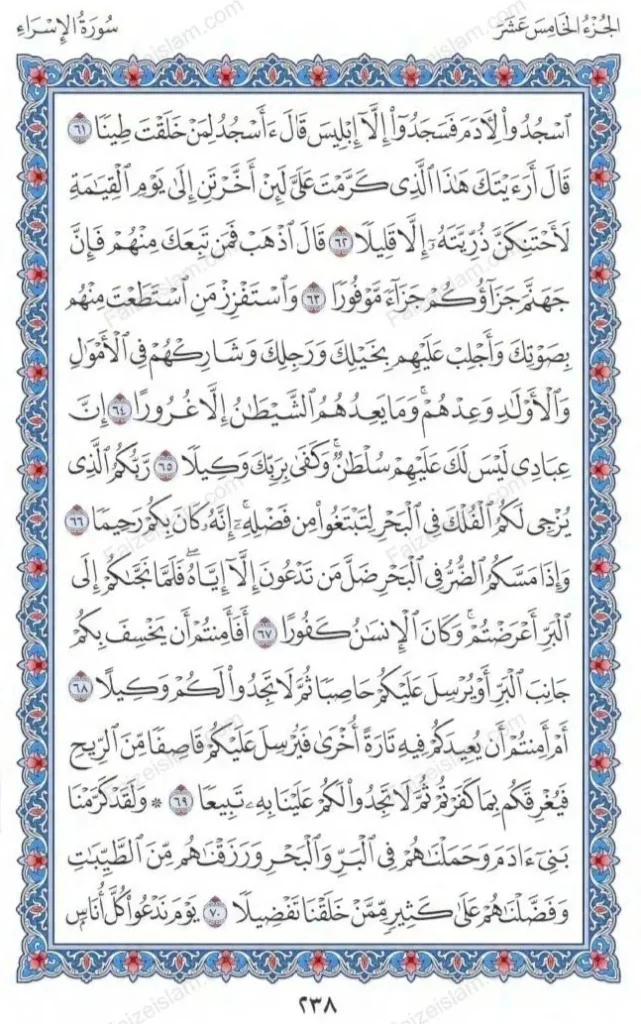 الجُزْءُ الخَامِسَ عَشَرَ
سُورَةُ الإِسْرَاءِ
ٱسْجُدُوا۟ لِـَٔادَمَ فَسَجَدُوٓا۟ إِلَّآ إِبْلِيسَ قَالَ ءَأَسْجُدُ لِمَنْ خَلَقْتَ طِينًا ٦١
قَالَ أَرَءَيْتَكَ هَٰذَا ٱلَّذِى كَرَّمْتَ عَلَىَّ لَئِنْ أَخَّرْتَنِ إِلَىٰ يَوْمِ ٱلْقِيَٰمَةِ
لَأَحْتَنِكَنَّ ذُرِّيَّتَهُۥٓ إِلَّا قَلِيلًا ٦٢ قَالَ ٱذْهَبْ فَمَن تَبِعَكَ مِنْهُمْ فَإِنَّ
جَهَنَّمَ جَزَآؤُكُمْ جَزَآءً مَّوْفُورًا ٦٣ وَٱسْتَفْزِزْ مَنِ ٱسْتَطَعْتَ مِنْهُم
بِصَوْتِكَ وَأَجْلِبْ عَلَيْهِم بِخَيْلِكَ وَرَجِلِكَ وَشَارِكْهُمْ فِى ٱلْأَمْوَٰلِ
وَٱلْأَوْلَٰدِ وَعِدْهُمْ ۚ وَمَا يَعِدُهُمُ ٱلشَّيْطَٰنُ إِلَّا غُرُورًا ٦٤ إِنَّ
عِبَادِى لَيْسَ لَكَ عَلَيْهِمْ سُلْطَٰنٌ ۚ وَكَفَىٰ بِرَبِّكَ وَكِيلًا ٦٥ رَّبُّكُمُ ٱلَّذِى
يُزْجِى لَكُمُ ٱلْفُلْكَ فِى ٱلْبَحْرِ لِتَبْتَغُوا۟ مِن فَضْلِهِۦٓ ۚ إِنَّهُۥ كَانَ بِكُمْ رَحِيمًا ٦٦
وَإِذَا مَسَّكُمُ ٱلضُّرُّ فِى ٱلْبَحْرِ ضَلَّ مَن تَدْعُونَ إِلَّآ إِيَّاهُ ۖ فَلَمَّا نَجَّىٰكُمْ إِلَى
ٱلْبَرِّ أَعْرَضْتُمْ ۚ وَكَانَ ٱلْإِنسَٰنُ كَفُورًا ٦٧ أَفَأَمِنتُمْ أَن يَخْسِفَ بِكُمْ
جَانِبَ ٱلْبَرِّ أَوْ يُرْسِلَ عَلَيْكُمْ حَاصِبًا ثُمَّ لَا تَجِدُوا۟ لَكُمْ وَكِيلًا ٦٨
أَمْ أَمِنتُمْ أَن يُعِيدَكُمْ فِيهِ تَارَةً أُخْرَىٰ فَيُرْسِلَ عَلَيْكُمْ قَاصِفًا مِّنَ ٱلرِّيحِ
فَيُغْرِقَكُم بِمَا كَفَرْتُمْ ثُمَّ لَا تَجِدُوا۟ لَكُمْ عَلَيْنَا بِهِۦ تَبِيعًا ٦٩ ۞ وَلَقَدْ كَرَّمْنَا
بَنِىٓ ءَادَمَ وَحَمَلْنَٰهُمْ فِى ٱلْبَرِّ وَٱلْبَحْرِ وَرَزَقْنَٰهُم مِّنَ ٱلطَّيِّبَٰتِ
وَفَضَّلْنَٰهُمْ عَلَىٰ كَثِيرٍ مِّمَّنْ خَلَقْنَا تَفْضِيلًا ٧٠ يَوْمَ نَدْعُوا۟ كُلَّ أُنَاسٍۭ
٢٣٨
Faizeislam.com